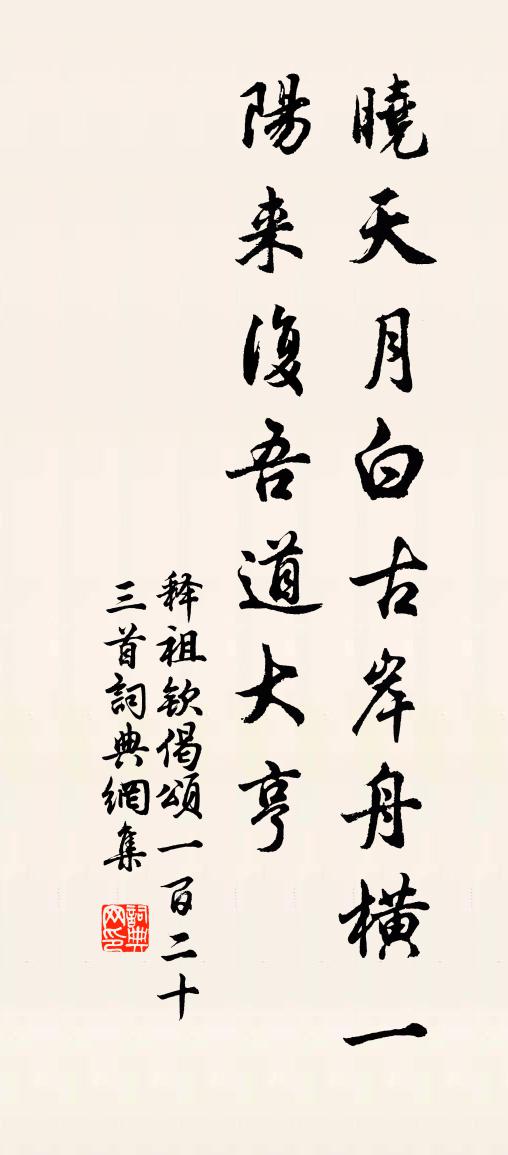 曉天月白古岸舟橫一
陽来復吾道大亨
释祖钦偈頌一百二十
三首詞典網集
詞典网印